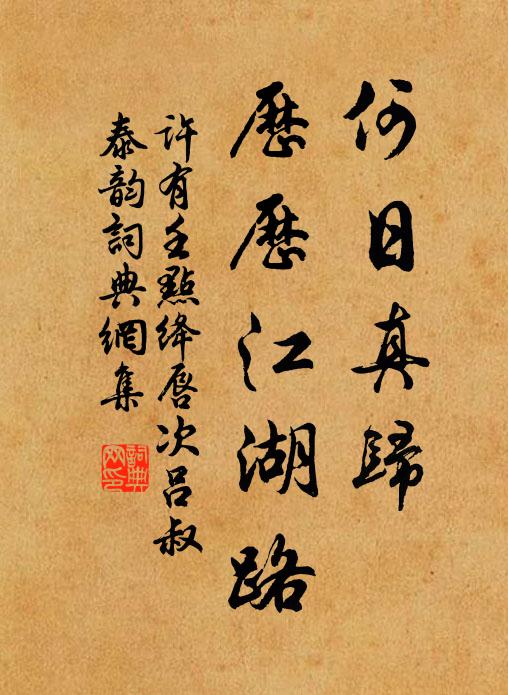 何日真歸
歷歷江湖路
許有壬點絳唇次呂叔
泰韵詞典網集
詞典
网印